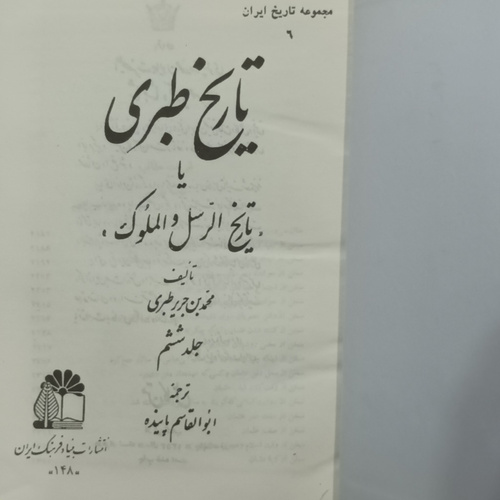 مجموعه تاریخ ایران
۶
تاریخ طبری
یا
«تاریخ الرسل والملوک»
تألیف
محمد بن جریر طبری
جلد ششم
ترجمهٔ
ابوالقاسم پاینده
انتشارات بنیاد فرهنگ ایران
«۱۴۸»